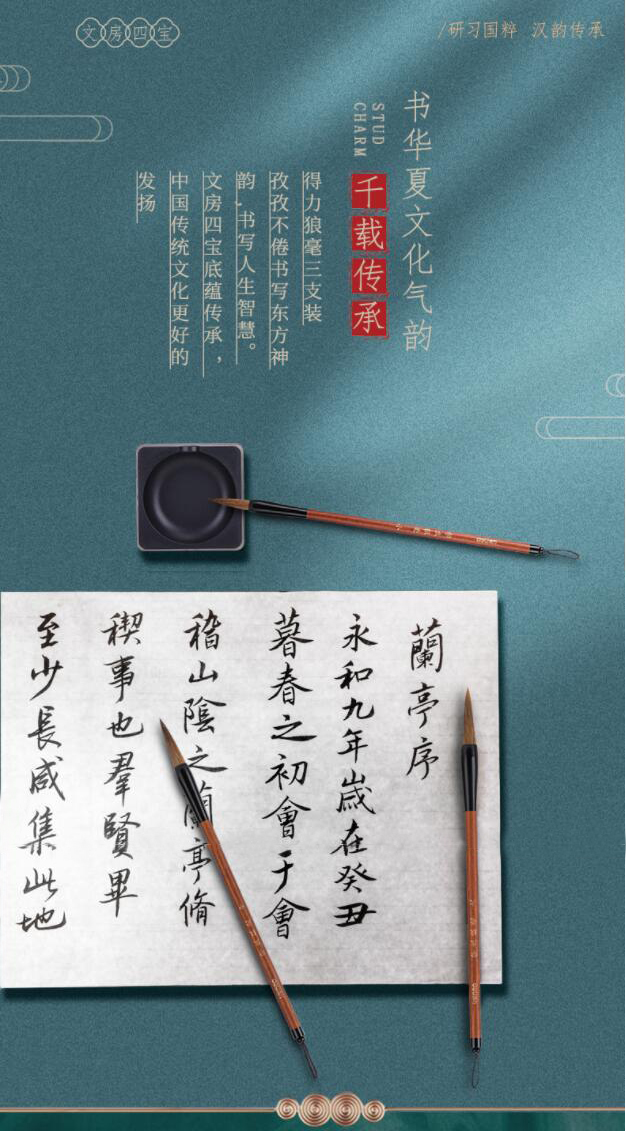 文房四宝
/研习国粹 汉韵传承
书华夏文化气韵
STUD
CHARM
千载传承
得力狼毫三支装
孜孜不倦书写东方神
韵,书写人生智慧。
文房四宝底蕴传承，
中国传统文化更好的
发扬
蘭亭序
永和九年歲在癸丑
暮春之初會于會
稽山陰之蘭亭脩
稧事也羣賢畢
至少長咸集此地